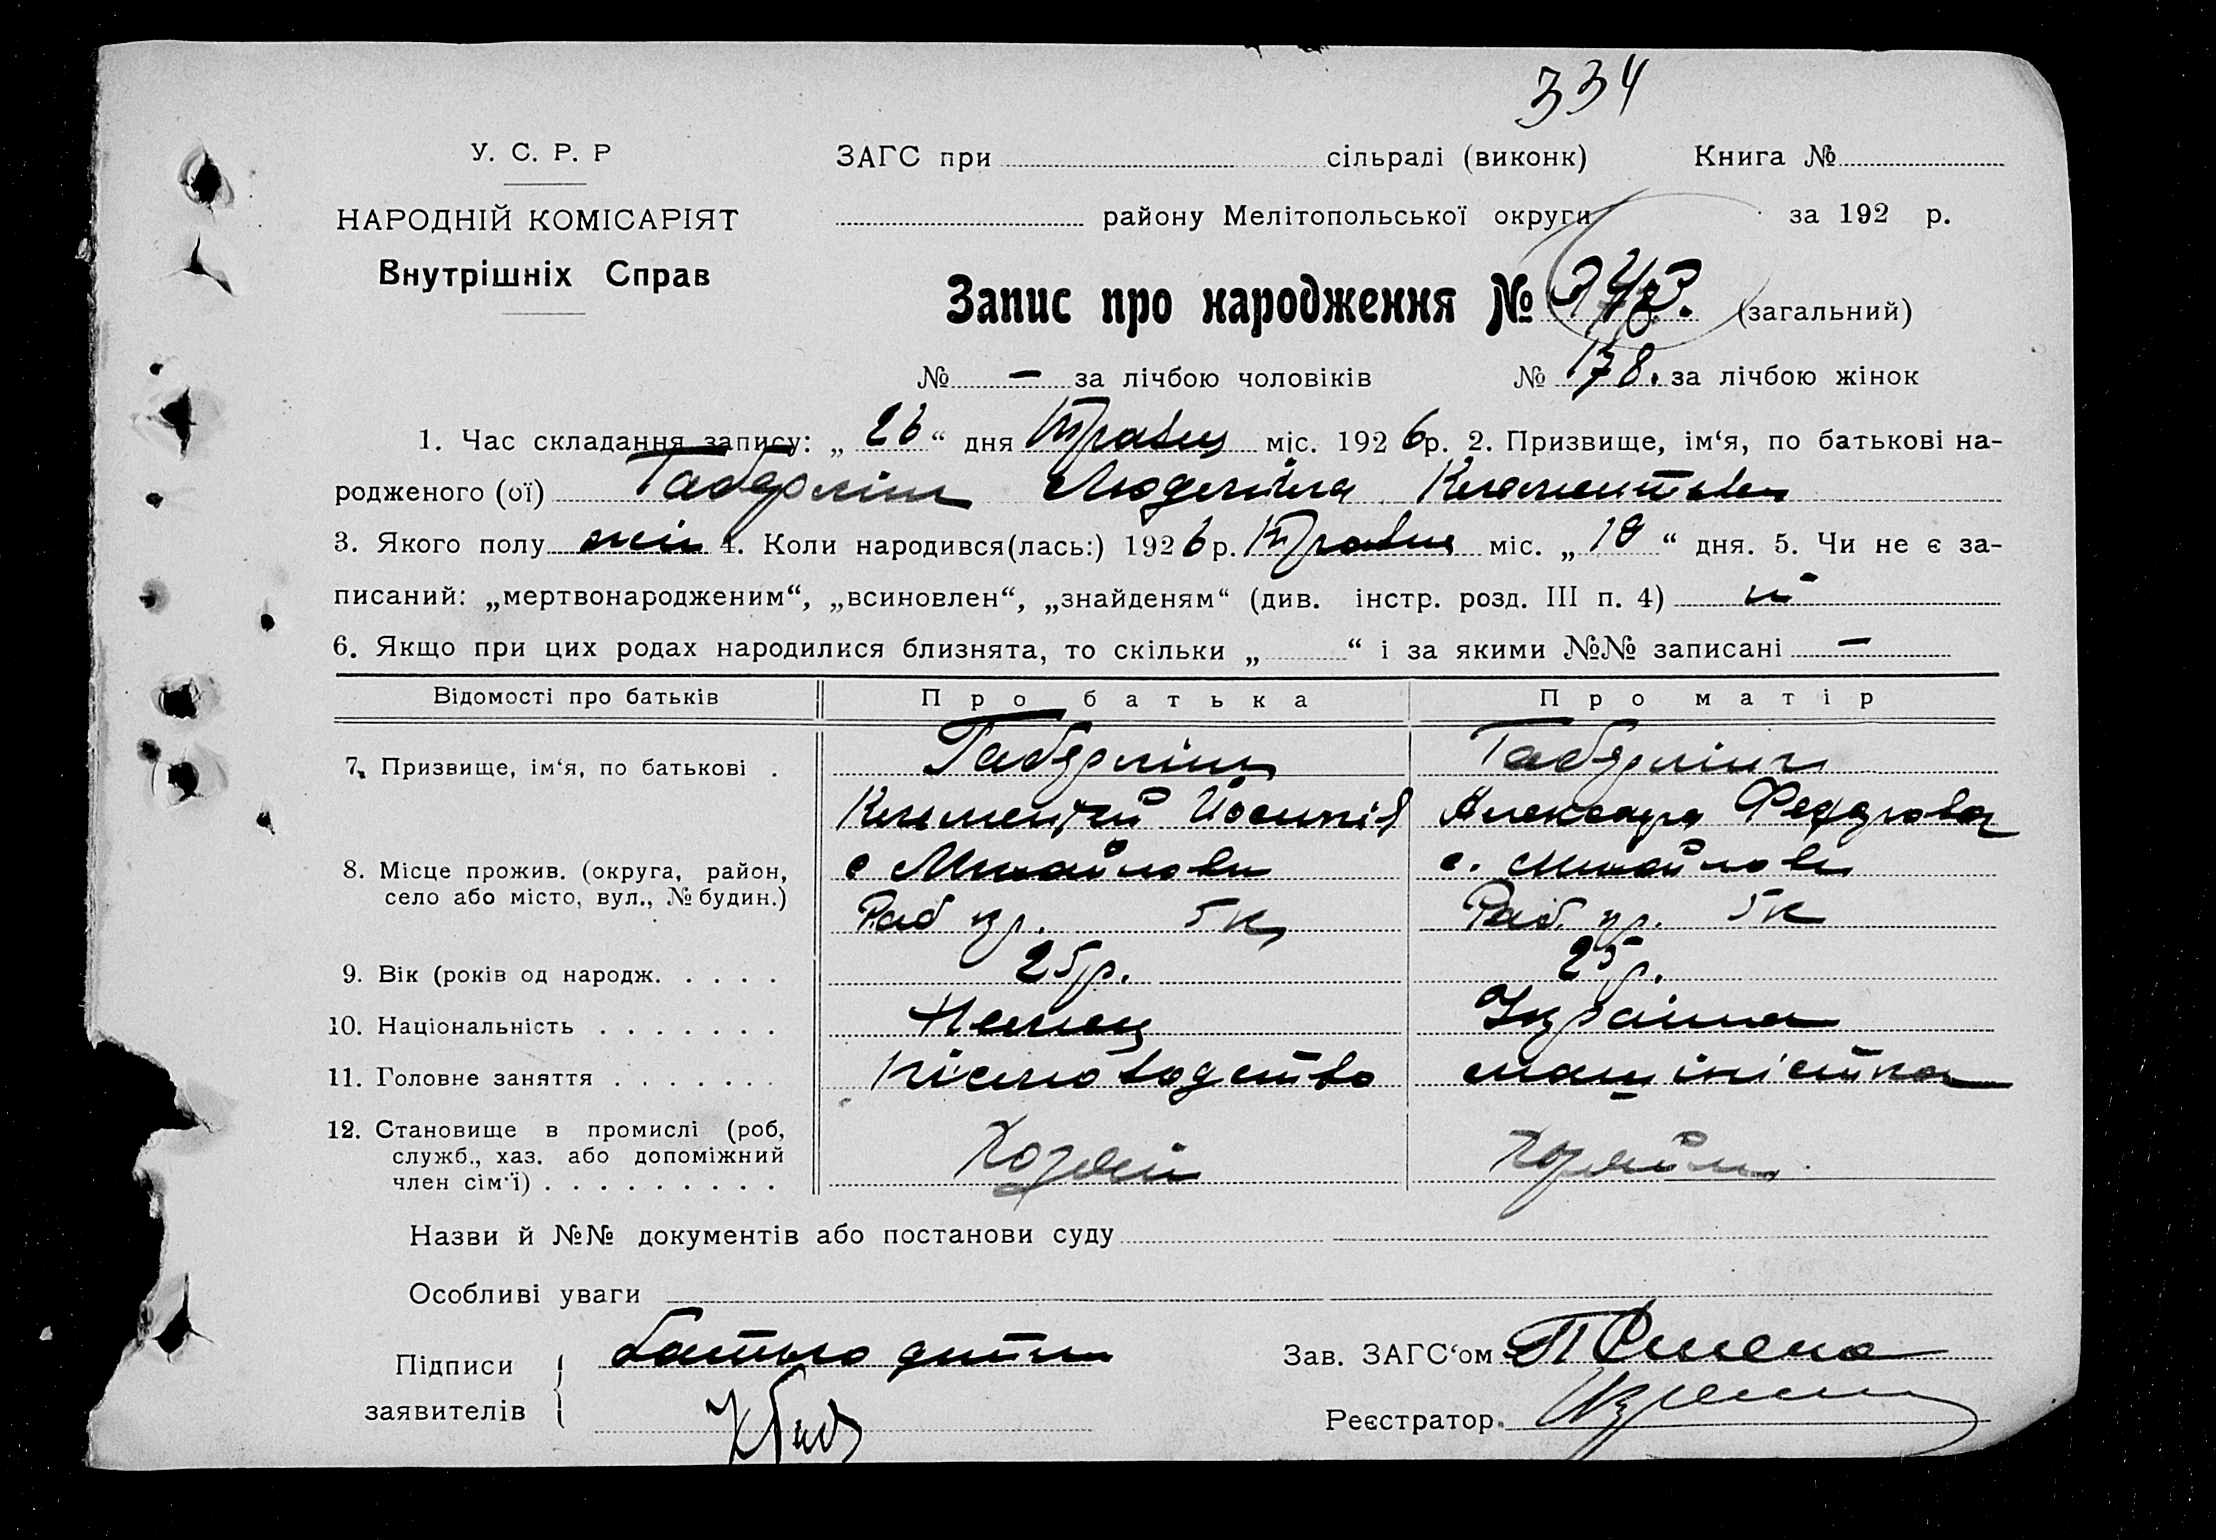 334
У. С. Р. Р
ЗАГС при сільраді (виконк) Книга №
НАРОДНІЙ КОМІСАРІЯТ
району Мелітопольської округи за 192 р.
Внутрішніх Справ
Запис про народження № (загальний)
№ — за лічбою чоловіків № 178. за лічбою жінок
1. Час складання запису: „ 26 “ дня Травня міс. 1926 р. 2. Призвище, ім‘я, по батькові на-
родженого (ої) Габерлінг Людміла Климентівн
3. Якого полу жін 4. Коли народився(лась:) 1926 р. Травня міс. „ “ дня. 5. Чи не є за-
писаний: „мертвонародженим“, „всиновлен“, „знайденям“ (див. інстр. розд. III п. 4) ні
6. Якщо при цих родах народилися близнята, то скільки „ “ і за якими №№ записані —
Відомості про батьків Про батька Про матір
7. Призвище, ім‘я, по батькові . Габерлінг Габерлінг
Климентий Йосипів Александра Федорова
8. Місце прожив. (округа, район, с Михайлівки с. Михайлівки
село або місто, вул., № будин.) Раб 5к Раб. 5к
9. Вік (років од народж. . . . . 25р. 25р.
10. Національність . . . . . . . Немец Українка
11. Головне заняття . . . . . . . машіністка
12. Становище в промислі (роб,
служб., хаз. або допоміжний Хозяїн Хозяйка
член сім‘ї) . . . . . . . . .
Назви й №№ документів або постанови суду
Особливі уваги
Підписи батько дитини Зав. ЗАГС‘ом
заявителів Реєстратор.